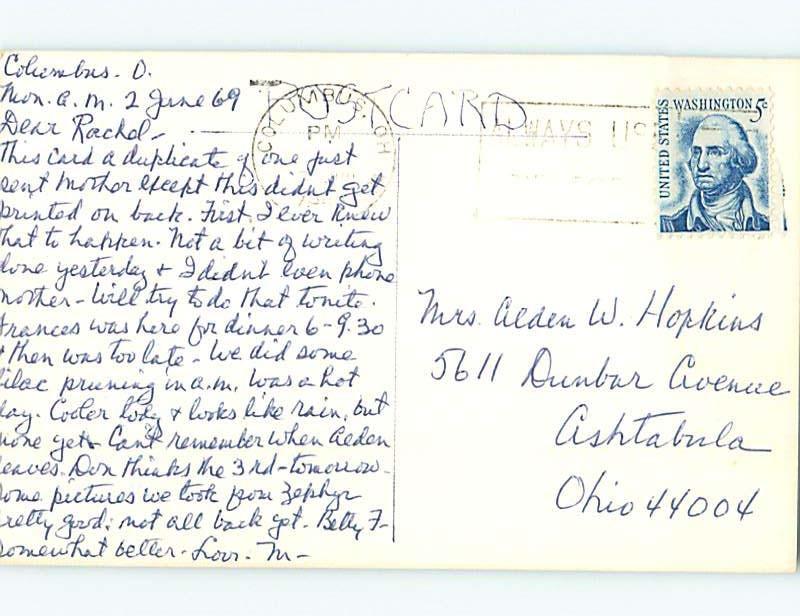 Columbus. O.
Mon. a.m. 2 June 69
POST CARD
COLUMBUS, OH
PM
ALWAYS USE
UNITED STATES
WASHINGTON 5¢
Dear Rachel-
This card a duplicate of one just
sent Mother except this didn't get
printed on back. First I ever knew
that to happen. Not a bit of writing
done yesterday & I didn't even phone
mother - Will try to do that tonite.
Frances was here for dinner 6-9.30
& then was too late - We did some
lilac pruning in a.m. Was a hot
day. Cooler today & looks like rain, but
none yet. Can't remember when Alden
leaves. Don thinks the 3rd - tomorrow.
Some pictures we took from Zephyr
pretty good; not all back yet. Betty F-
somewhat better. Love. M-
Mrs. Alden W. Hopkins
5611 Dunbar Avenue
Ashtabula
Ohio 44004